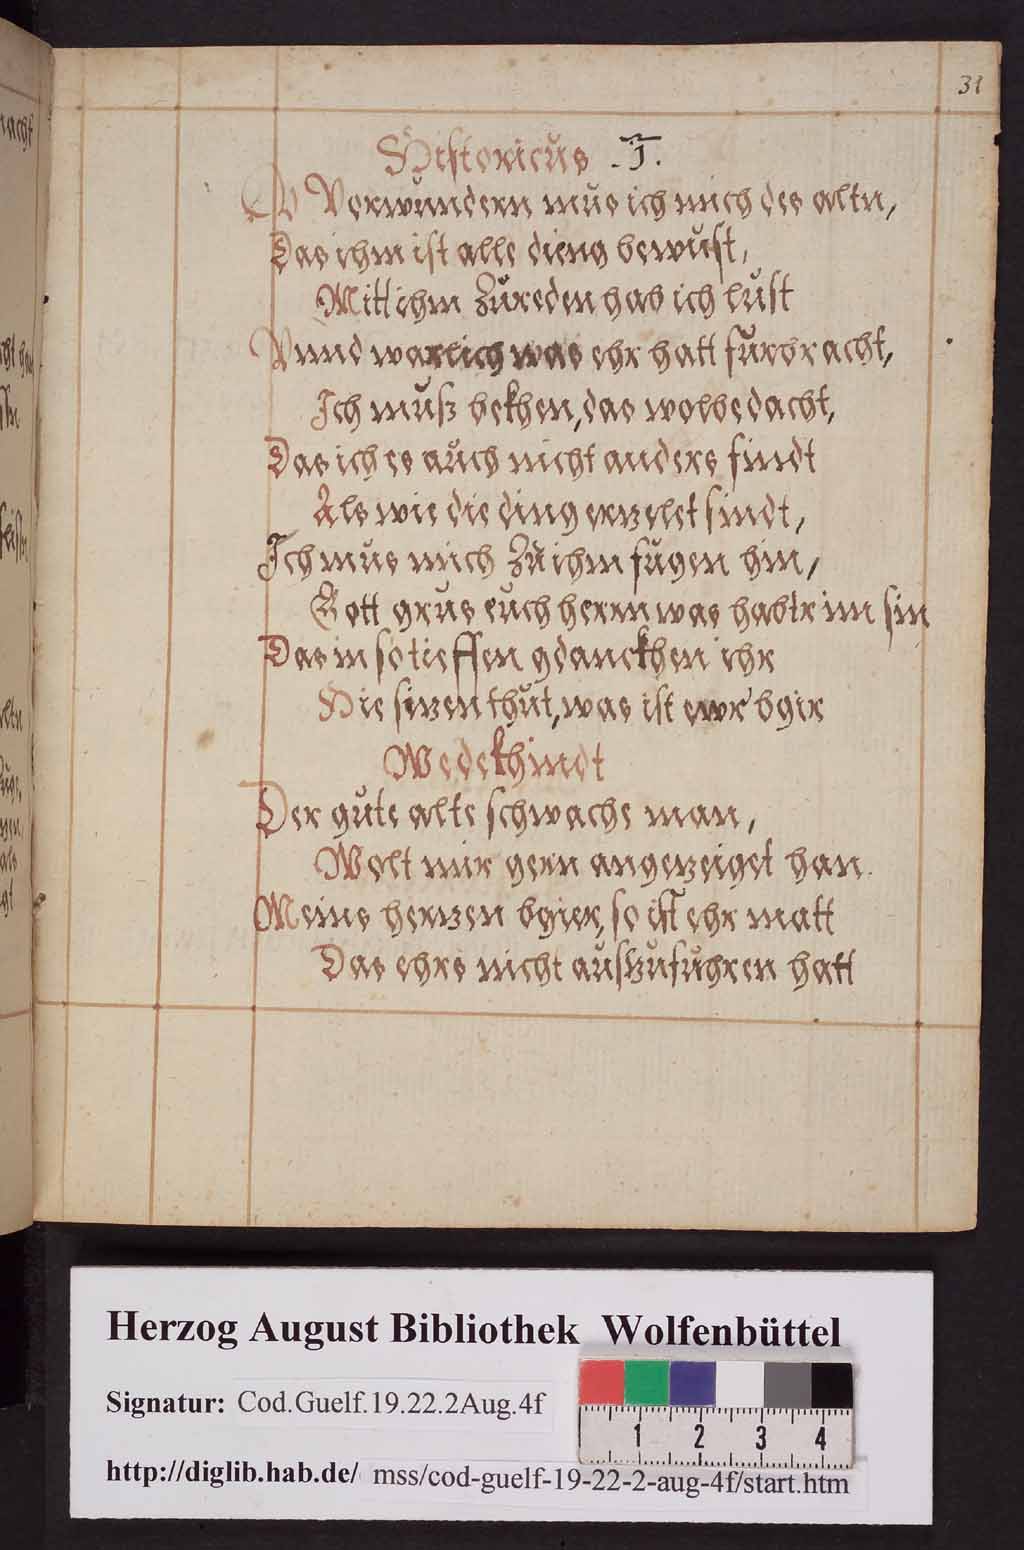 31
Historicus .J.
O Verwundern mus ich mich des altn,
Das ihm ist alle dieng bewust,
Mitt ihm Zureden hab ich lust
Vnnd warlich was ehr hatt furbracht,
Ich muß bekhen, das wolbedacht,
Das ich es auch nicht anders findt
Als wie die ding erzelet sindt,
Ich mus mich Zu ihm fugen hin,
Gott grus euch herrn was habtr im sin
Das in so tieffen gdanckhen ihr
Hie sizen thut, was ist ewr bgir
Wedekhindt
Der gute alte schwache man,
Wolt mir gern angezeiget han.
Meins herzen bgier, so ist ehr matt
Das ehrs nicht auszufuhren hatt
Herzog August Bibliothek Wolfenbüttel
Signatur: Cod.Guelf.19.22.2Aug.4f
1 2 3 4
http://diglib.hab.de/ mss/cod-guelf-19-22-2-aug-4f/start.htm